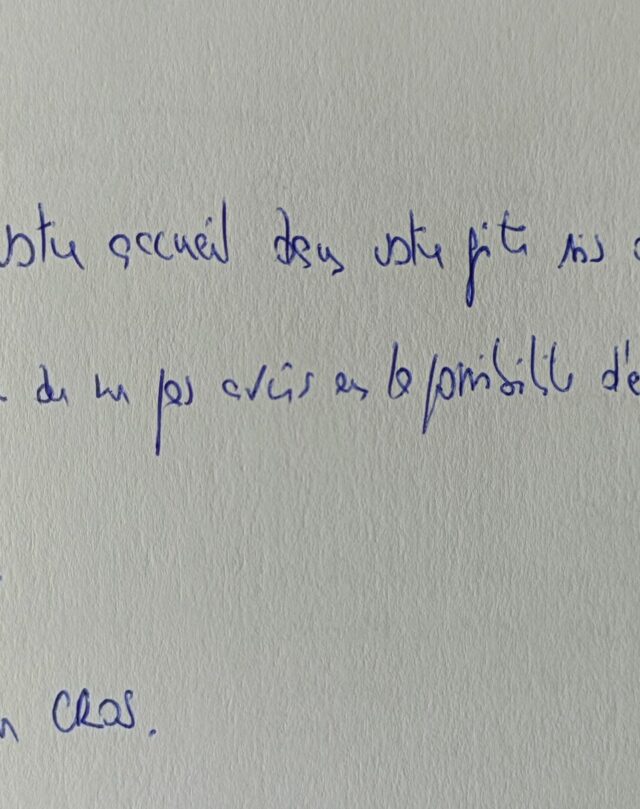 votre accueil dans votre gîte si
de ne pas avoir eu la possibilité d'é
CROS.